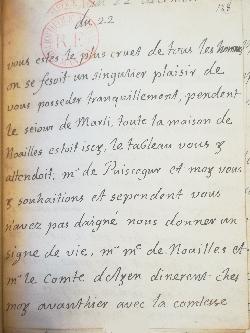 du 22
vous estes le plus cruel de tous les hommes
on se fesoit un singulier plaisir de
vous posseder tranquillement, pendent
le seiour de Marli, toute la maison de
Noailles estoit icy, le tableau vous y
attendoit, mr de Puisegur et moy vous
y souhaitions et sependent vous
n'avez pas daigné nous donner un
signe de vie, mr me de Noailles et
mr le Comte d'Ayen dinerent ches
moy avanthier avec la comtesse